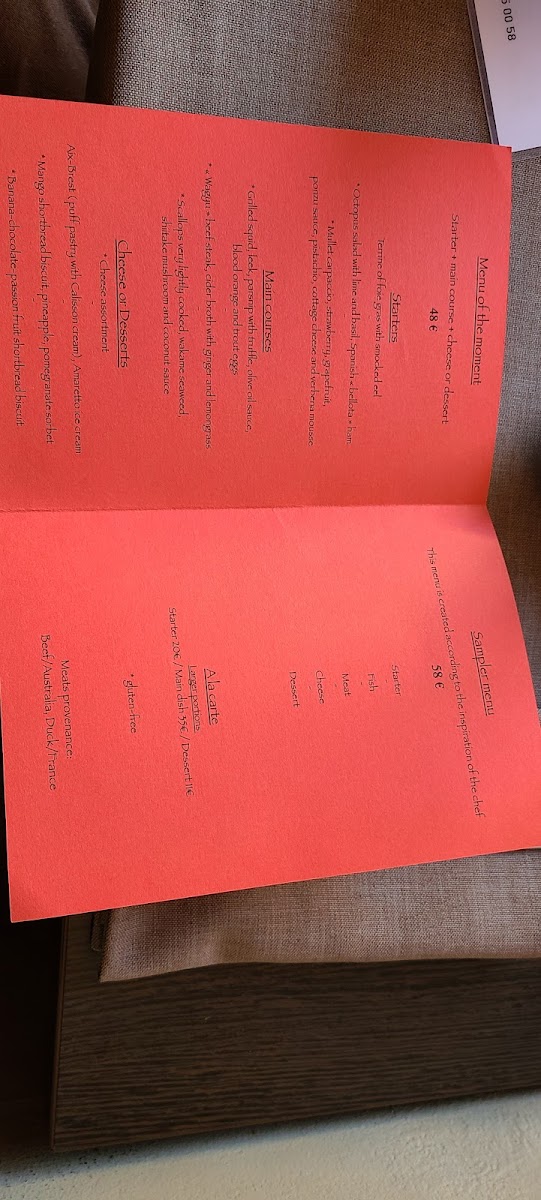 Menu of the moment
Starter + main course + cheese or dessert
48 €
Starters
Terrine of foie gras with smocked eel
* Octopus salad with lime and basil, Spanish « bellota » ham
* Mullet carpaccio, strawberry, grapefruit,
ponzu sauce, pistachio, cottage cheese and verbena mousse
Main courses
* Grilled squid, leek, parsnip with truffle, olive oil sauce,
blood orange and trout eggs
* « Waggu » beef steak, cider broth with ginger and lemongrass
* Scallops very lightly cooked, wakame seaweed,
shiitake mushroom and coconut sauce
Cheese or Desserts
* Cheese assortment
Aix-Brest (puff pastry with Calisson cream), Amaretto ice cream
* Mango shortbread biscuit, pineapple, pomegranate sorbet
* Banana-chocolate-passion fruit shortbread biscuit
Sampler menu
58 €
This menu is created according to the inspiration of the chef
Starter
-
Fish
-
Meat
-
Cheese
-
Dessert
A la carte
Larger portions
Starter 20€ / Main dish 35€ / Dessert 11€
* gluten-free
Meats provenance:
Beef/Australia, Duck/France
5 00 58